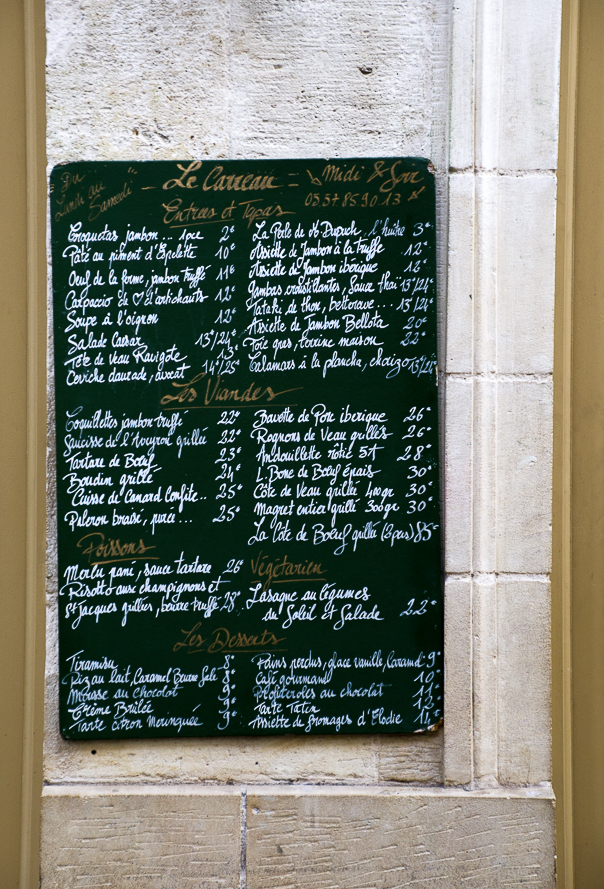 Du Lundi au Samedi
Le Carreau
Midi & Soir
05 57 85 90 13
Entrées et Tapas
Croquetas jambon... 1pce 2€
Pâte au piment d'Espelette 10€
Oeuf de la ferme, jambon truffé 11€
Carpaccio de ♡ d'artichauts 12€
Soupe à l'oignon 12€
Salade Caesar 13€/24€
Tête de veau Ravigote 13€
Ceviche daurade, avocat 14€/25€
La Perle de Mr Dupuch, l'huître 3€
Assiette de Jambon à la truffe 12€
Assiette de Jambon ibérique 16€
Gambas croustillantes, Sauce thaï 13€/24€
Tataki de thon, betterave... 13€/24€
Assiette de Jambon Bellota 20€
Foie gras, terrine maison 22€
Calamars à la plancha, chorizo 13€/24€
Les Viandes
Coquillettes jambon truffé 22€
Saucisse de l'Aveyron grillée 22€
Tartare de Boeuf 23€
Boudin grillé 24€
Cuisse de Canard Confite.. 25€
Paleron braisé, purée... 25€
Bavette de Porc iberique 26€
Rognons de Veau grillés 26€
Andouillette rôtie 5A 28€
L.Bone de Boeuf épais 30€
Côte de Veau grillée 400gr 30€
Magret entier grillé 300gr 30€
La Côte de Boeuf grillée (2pers) 85€
Poissons
Merlu pané, sauce tartare 26€
Risotto aux champignons et
St Jacques grillées, beurre truffé 28€
Végétarien
Lasagne au légumes
du Soleil et Salade 22€
Les Desserts
Tiramisu 8€
Riz au lait, Caramel Beurre Salé 8€
Mousse au chocolat 9€
Crème Brûlée 9€
Tarte citron Meringuée 9€
Pains perdus, glace vanille, Caramel 9€
Café gourmand 10€
Profiteroles au chocolat 11€
Tarte Tatin 12€
Assiette de fromages d'Elodie 14€